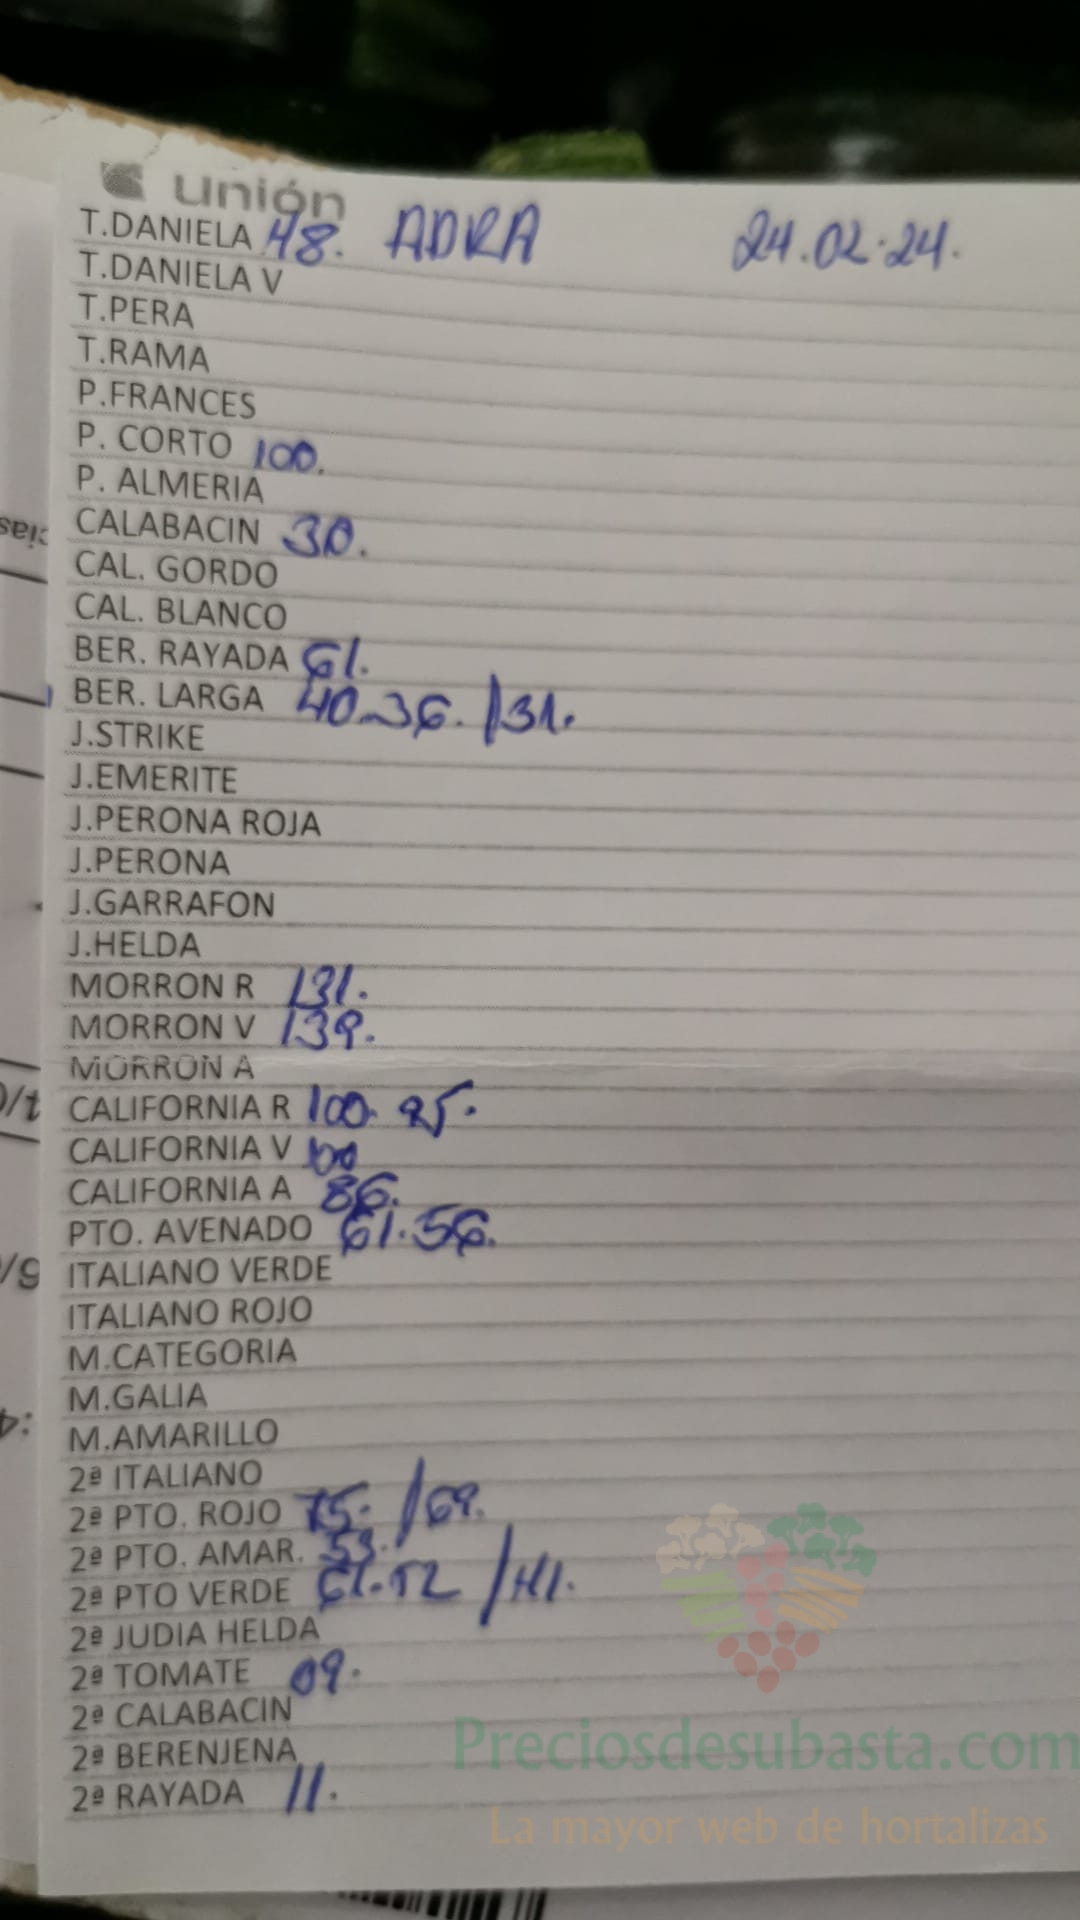 unión
T.DANIELA 48. ADRA 24.02.24.
T.DANIELA V
T.PERA
T.RAMA
P.FRANCES
P. CORTO 100.
P. ALMERIA
CALABACIN 30.
CAL. GORDO
CAL. BLANCO
BER. RAYADA 61.
BER. LARGA 40-36. /31.
J.STRIKE
J.EMERITE
J.PERONA ROJA
J.PERONA
J.GARRAFON
J.HELDA
MORRON R 131.
MORRON V 139.
MORRON A
CALIFORNIA R 100.
CALIFORNIA V 100
CALIFORNIA A 86.
PTO. AVENADO 61.56.
ITALIANO VERDE
ITALIANO ROJO
M.CATEGORIA
M.GALIA
M.AMARILLO
2ª ITALIANO
2ª PTO. ROJO 75. /69.
2ª PTO. AMAR. 53.
2ª PTO VERDE 61.52 /41.
2ª JUDIA HELDA
2ª TOMATE 09.
2ª CALABACIN
2ª BERENJENA
2ª RAYADA 11.
Preciosdesubasta.com
La mayor web de hortalizas